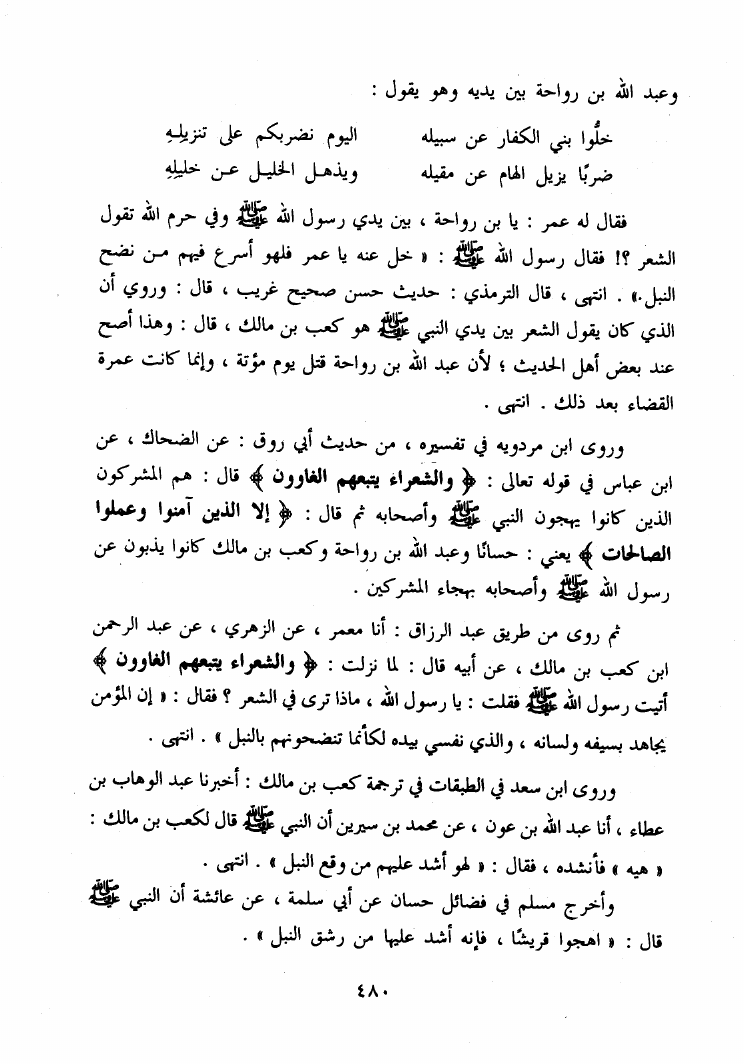 وعبد الله بن رواحة بين يديه وهو يقول :
خلُّوا بني الكفار عن سبيله اليوم نضربكم على تنزيلِهِ
ضربًا يزيل الهام عن مقيله ويذهل الخليل عن خليلِهِ
فقال له عمر : يا بن رواحة ، بين يدي رسول الله ﷺ وفي حرم الله تقول
الشعر ؟! فقال رسول الله ﷺ : « خل عنه يا عمر فلهو أسرع فيهم من نضح
النبل.» . انتهى ، قال الترمذي : حديث حسن صحيح غريب ، قال : وروي أن
الذي كان يقول الشعر بين يدي النبي ﷺ هو كعب بن مالك ، قال : وهذا أصح
عند بعض أهل الحديث ؛ لأن عبد الله بن رواحة قتل يوم مؤتة ، وإنما كانت عمرة
القضاء بعد ذلك . انتهى .
وروى ابن مردويه في تفسيره ، من حديث أبي روق : عن الضحاك ، عن
ابن عباس في قوله تعالى : ﴿ والشعراء يتبعهم الغاوون ﴾ قال : هم المشركون
الذين كانوا يهجون النبي ﷺ وأصحابه ثم قال : ﴿ إلا الذين آمنوا وعملوا
الصالحات ﴾ يعني : حسانًا وعبد الله بن رواحة وكعب بن مالك كانوا يذبون عن
رسول الله ﷺ وأصحابه بهجاء المشركين .
ثم روى من طريق عبد الرزاق : أنا معمر ، عن الزهري ، عن عبد الرحمن
ابن كعب بن مالك ، عن أبيه قال : لما نزلت : ﴿ والشعراء يتبعهم الغاوون ﴾
أتيت رسول الله ﷺ فقلت : يا رسول الله ، ماذا ترى في الشعر ؟ فقال : « إن المؤمن
يجاهد بسيفه ولسانه ، والذي نفسي بيده لكأنما تنضحونهم بالنبل » . انتهى .
وروى ابن سعد في الطبقات في ترجمة كعب بن مالك : أخبرنا عبد الوهاب بن
عطاء ، أنا عبد الله بن عون ، عن محمد بن سيرين أن النبي ﷺ قال لكعب بن مالك :
« هيه » فأنشده ، فقال : « لهو أشد عليهم من وقع النبل » . انتهى .
وأخرج مسلم في فضائل حسان عن أبي سلمة ، عن عائشة أن النبي ﷺ
قال : « اهجوا قريشًا ، فإنه أشد عليها من رشق النبل » .
٤٨٠